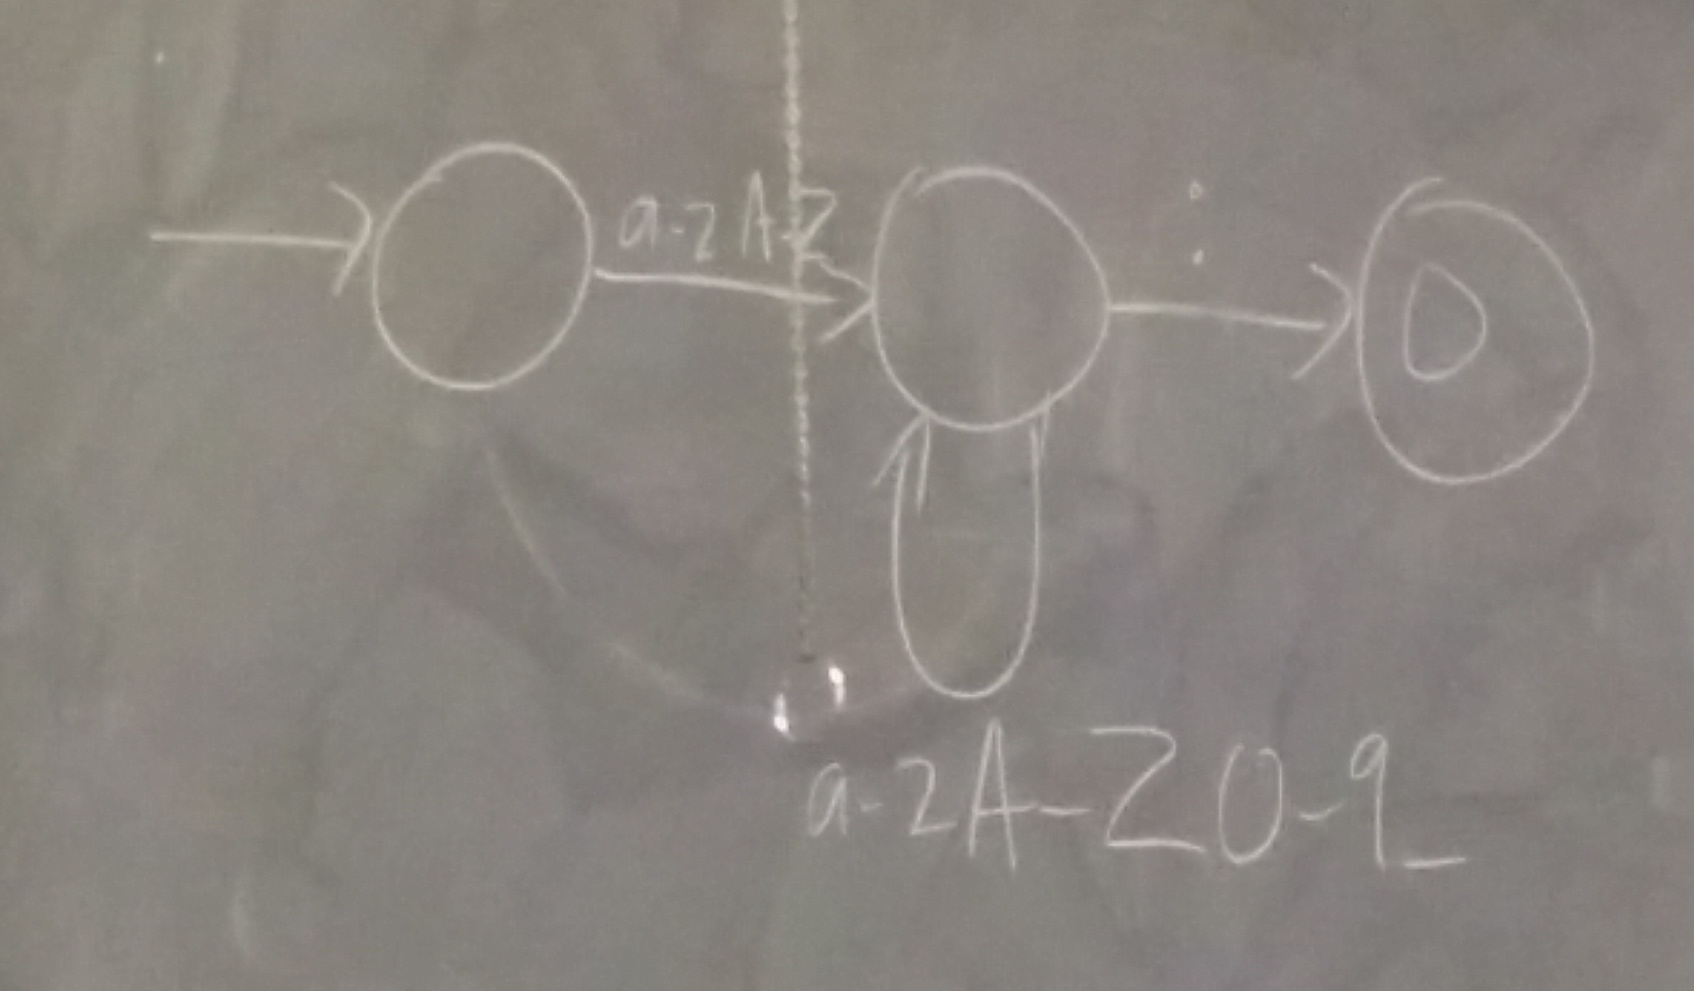 a-z A-Z
:
a-zA-Z0-9_